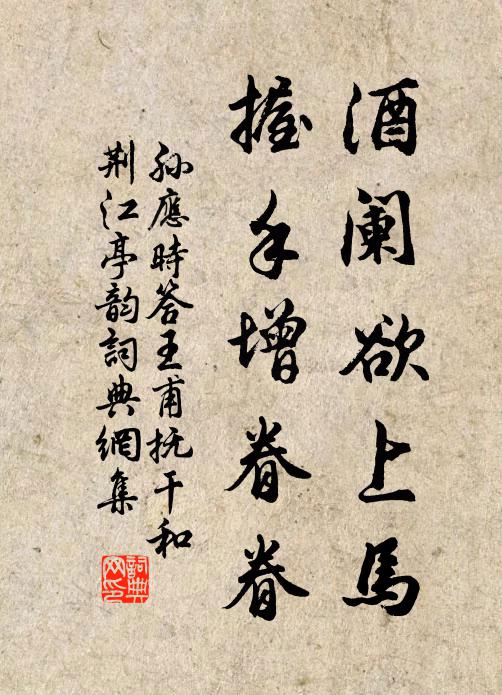 酒阑欲上馬
握手增眷眷
孫應時答王甫抚干和
荆江亭韵詞典網集
詞典網印